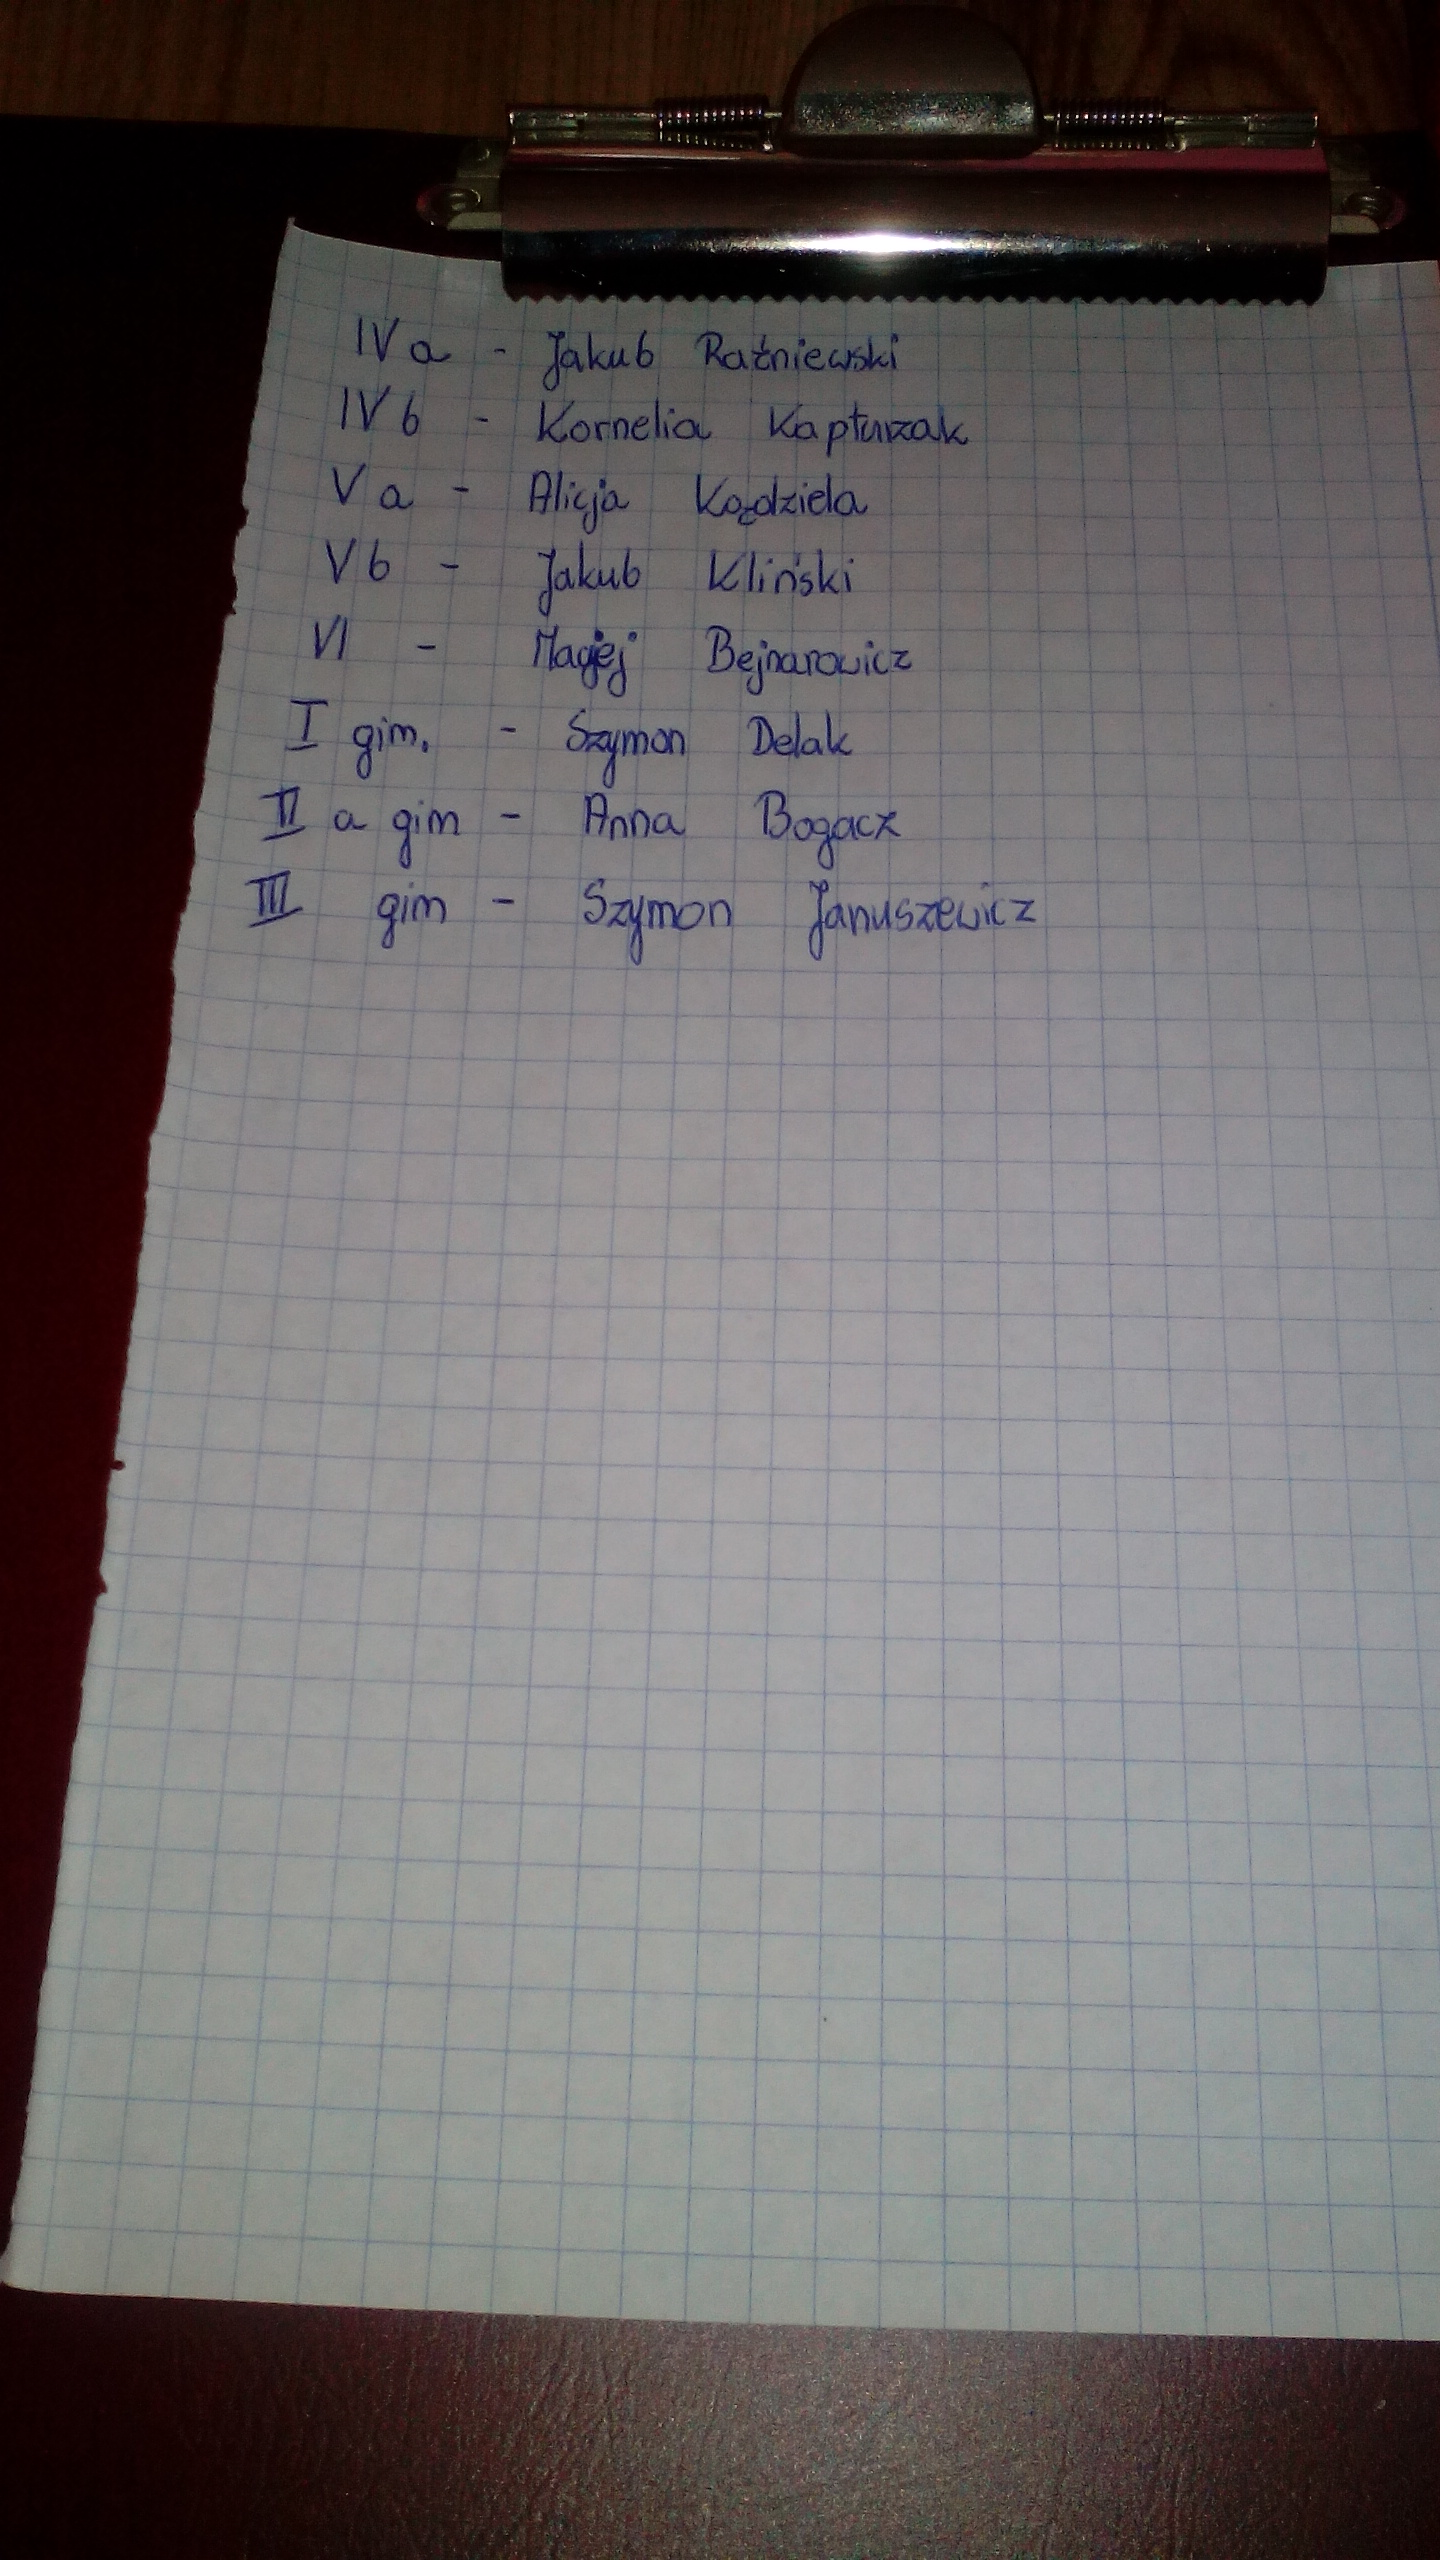 IV a - Jakub Raźniewski
IV b - Kornelia Kapturzak
V a - Alicja Koździela
V b - Jakub Kliński
VI - Maciej Bejnarowicz
I gim. - Szymon Delak
II a gim - Anna Bogacz
III gim - Szymon Januszewicz